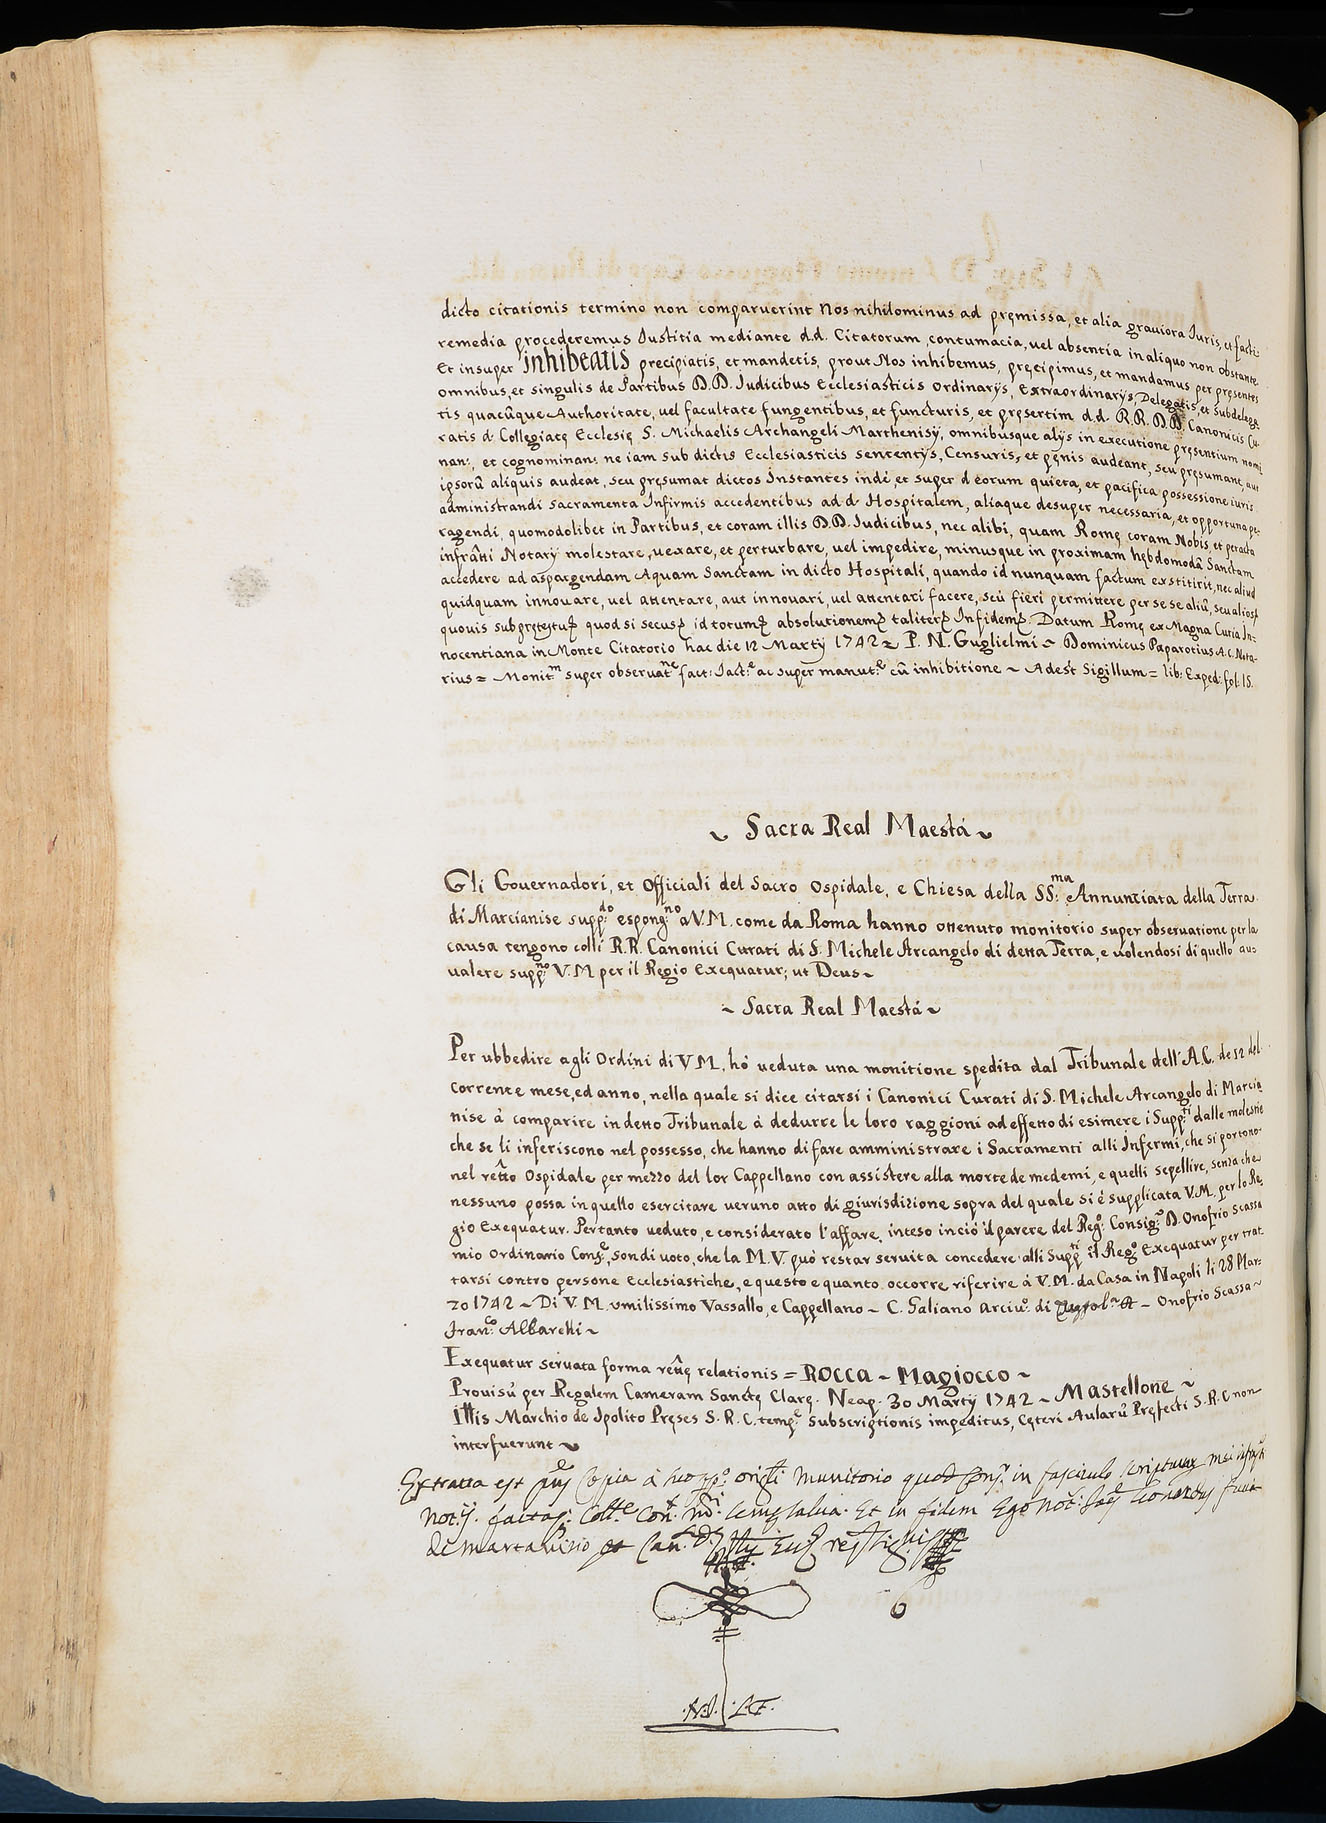 dicto citationis termino non comparuerint Nos nihilominus ad pręmissa, et alia grauiora Iuris, et facti
remedia procederemus Iustitia mediante d.d. Citatorum contumacia, uel absentia in aliquo non obstante
Et insuper inhibeatis precipiatis, et mandetis, prout Nos inhibemus, pręcipimus, et mandamus per pręsentes
omnibus, et singulis de Partibus D.D. Judicibus Ecclesiasticis ordinarijs, Extraordinarijs, Delegatis, et subdelega
tis quacûque Authoritate, uel facultate fungentibus, et functuris, et pręsertim d.d. R.R. D.D. Canonicis Cu-
ratis dę Collegiatę Ecclesię S. Michaelis Archangeli Marthenisij, omnibusque alijs in executione pręsentium nomi
nan:, et cognominan: ne iam sub dictis Ecclesiasticis sententijs, Censuris, et pęnis audeant, seu pręsumant, aut
ipsorũ aliquis audeat, seu pręsumat dictos Instantes indè, et super eorum quieta, et pacifica possessione iuris
administrandi sacramenta Infirmis accedentibus ad d. Hospitalem, aliaque desuper necessaria, et opportuna pe-
ragendi, quomodolibet in Partibus, et coram illis D.D. Judicibus, nec alibi, quam Romę coram Nobis, et peracta
infrãtti Notarij molestare, uexare, et perturbare, uel impedire, minusque in proximam hębdomodã Sanctam
accedere ad aspargendam Aquam Sanctam in dicto Hospitali, quando id nunquam factum exstitirit, nec aliud
quidquam innouare, uel attentare, aut innouari, uel attentari facere, seù fieri permittere per se se aliũ, seu alios
quouis sub pretextu quod si secus id totum absolutionem taliter Infidem Datum Romę ex Magna Curia In-
nocentiana in Monte Citatorio hac die 12 Martij 1742 = P. N. Guglielmi ~ Dominicus Paparotius A.C. Nota-
rius = Monit.m super observat.ne fact: Jact.e ac super manut.e cũ inhibitione ~ Adest Sigillum = lib: Exped: fol: 15.
~ Sacra Real Maestà ~
Gli Gouernadori, et Officiali del Sacro Ospidale, e Chiesa della SS:ma Annunziata della Terra
di Marcianise supp:do espong:no a V.M. come da Roma hanno ottenuto monitorio super obseruatione per la
causa tengono colli R.R. Canonici Curati di S. Michele Arcangelo di detta Terra, e uolendosi di quello au=
ualere supp:no V.M per il Regio Exequatur; ut Deus ~
~ Sacra Real Maestà ~
Per ubbedire agli Ordini di V.M. hò ueduta una monitione spedita dal Tribunale dell'A.C. de 12 del
corrente mese, ed anno, nella quale si dice citarsi i Canonici Curati di S. Michele Arcangelo di Marcia
nise à comparire in detto Tribunale à dedurre le loro raggioni ad effetto di esimere i Supp:ti dalle molestie
che se li inferiscono nel possesso, che hanno di fare amministrare i Sacramenti alli Infermi, che si portono
nel retto Ospidale per mezzo del lor Cappellano con assistere alla morte de medemi, e quelli sepellire, senza che
nessuno possa in quello esercitare ueruno atto di giurisdizione sopra del quale si è supplicata V.M. per lo Re
gio Exequatur. Pertanto ueduto, e considerato l'affare, inteso in ciò il parere del Reg:o Consig:e D. Onofrio Scassa
mio Ordinario Cons:e, son di uoto, che la M.V. può restar seruita concedere alli Supp:ti il Reg:o Exequatur per trat
tarsi contro persone Ecclesiastiche, e questo e quanto occorre riferire à V.M. da Casa in Napoli li 28 Mar=
zo 1742 ~ Di V.M. vmilissimo Vassallo, e Cappellano ~ C. Galiano Arciu:o di ~ Onofrio Scassa ~
Fran:co Albarelli ~
Exequatur seruata forma retię relationis = ROCCA ~ Magiocco ~
Prouisũ per Regalem Cameram Sanctę Clarę. Neap. 30 Martij 1742 ~ Mastellone ~
Illis Marchio de Ipolito Pręses S. R. C. temp:e subscriptionis impeditus, Cęteri Aularũ Pręfecti S.R.C non
interfuerunt ~
Extratta est Copia à suo origli munitorio in fasciculo scripturar mei
Not:ij. semp salua. Et in fidem Ego Not:
de Martanisio
.N.J. L.F.